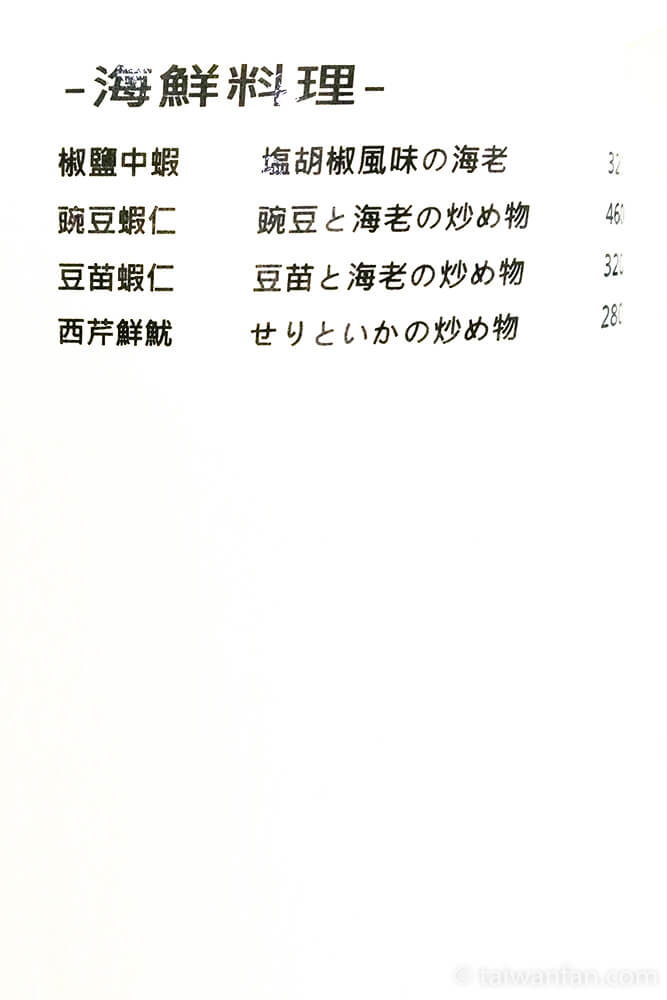 -海鮮料理-
椒鹽中蝦 塩胡椒風味の海老 32
豌豆蝦仁 豌豆と海老の炒め物 460
豆苗蝦仁 豆苗と海老の炒め物 320
西芹鮮魷 せりといかの炒め物 280
© taiwanfan.com